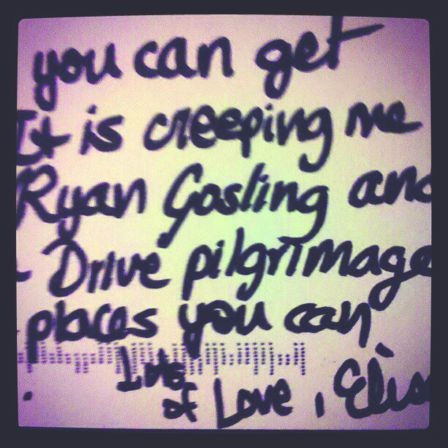 you can get
It is creeping me
Ryan Gosling and
Drive pilgrimage
places you can
Lots
of Love, Elise